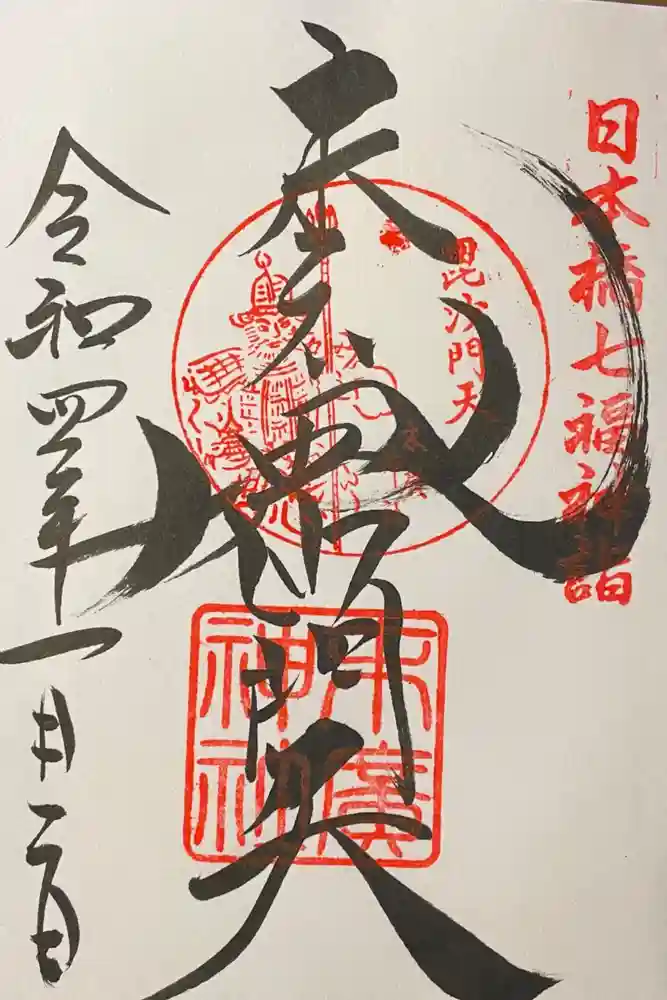 日本橋七福神詣
毘沙門天
毘沙門天
末廣
神社
令和四年一月二日